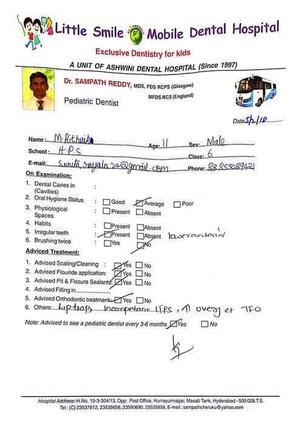 Little Smile Mobile Dental Hospital
Exclusive Dentistry for kids
A UNIT OF ASHWINI DENTAL HOSPITAL (Since 1997)
Dr. SAMPATH REDDY, MDS, FDS RCPS (Glasgow)
MFDS RCS (England)
Pediatric Dentist
Date:
Name: Age: 11 Sex: Male
School: HPS Class: 6
E-mail: Phone:
On Examination:
1. Dental Caries in :
(Cavities)
2. Oral Hygiene Status : Good Average Poor
3. Physiological : Present Absent
Spaces
4. Habits : Present Absent
5. Irregular teeth : Present Absent
6. Brushing twice : Yes No
Adviced Treatment:
1. Advised Scaling/Cleaning : Yes No
2. Advised Flouride application: Yes No
3. Advised Pit & Fissure Sealants: Yes No
4. Advised Filling in
5. Advised Orthodontic treatment Yes No
6. Others: incompetent
Note: Advised to see a pediatric dentist every 3-6 months Yes No
Hospital Address: H.No. 10-3-304/13, Opp. Post Office, Humayunnagar, Masab Tank, Hyderabad - 500 028 T.S.
Tel: (C) 23537612, 23535656, 23590690, 23535858, E-mail: sampathcheruku@yahoo.com